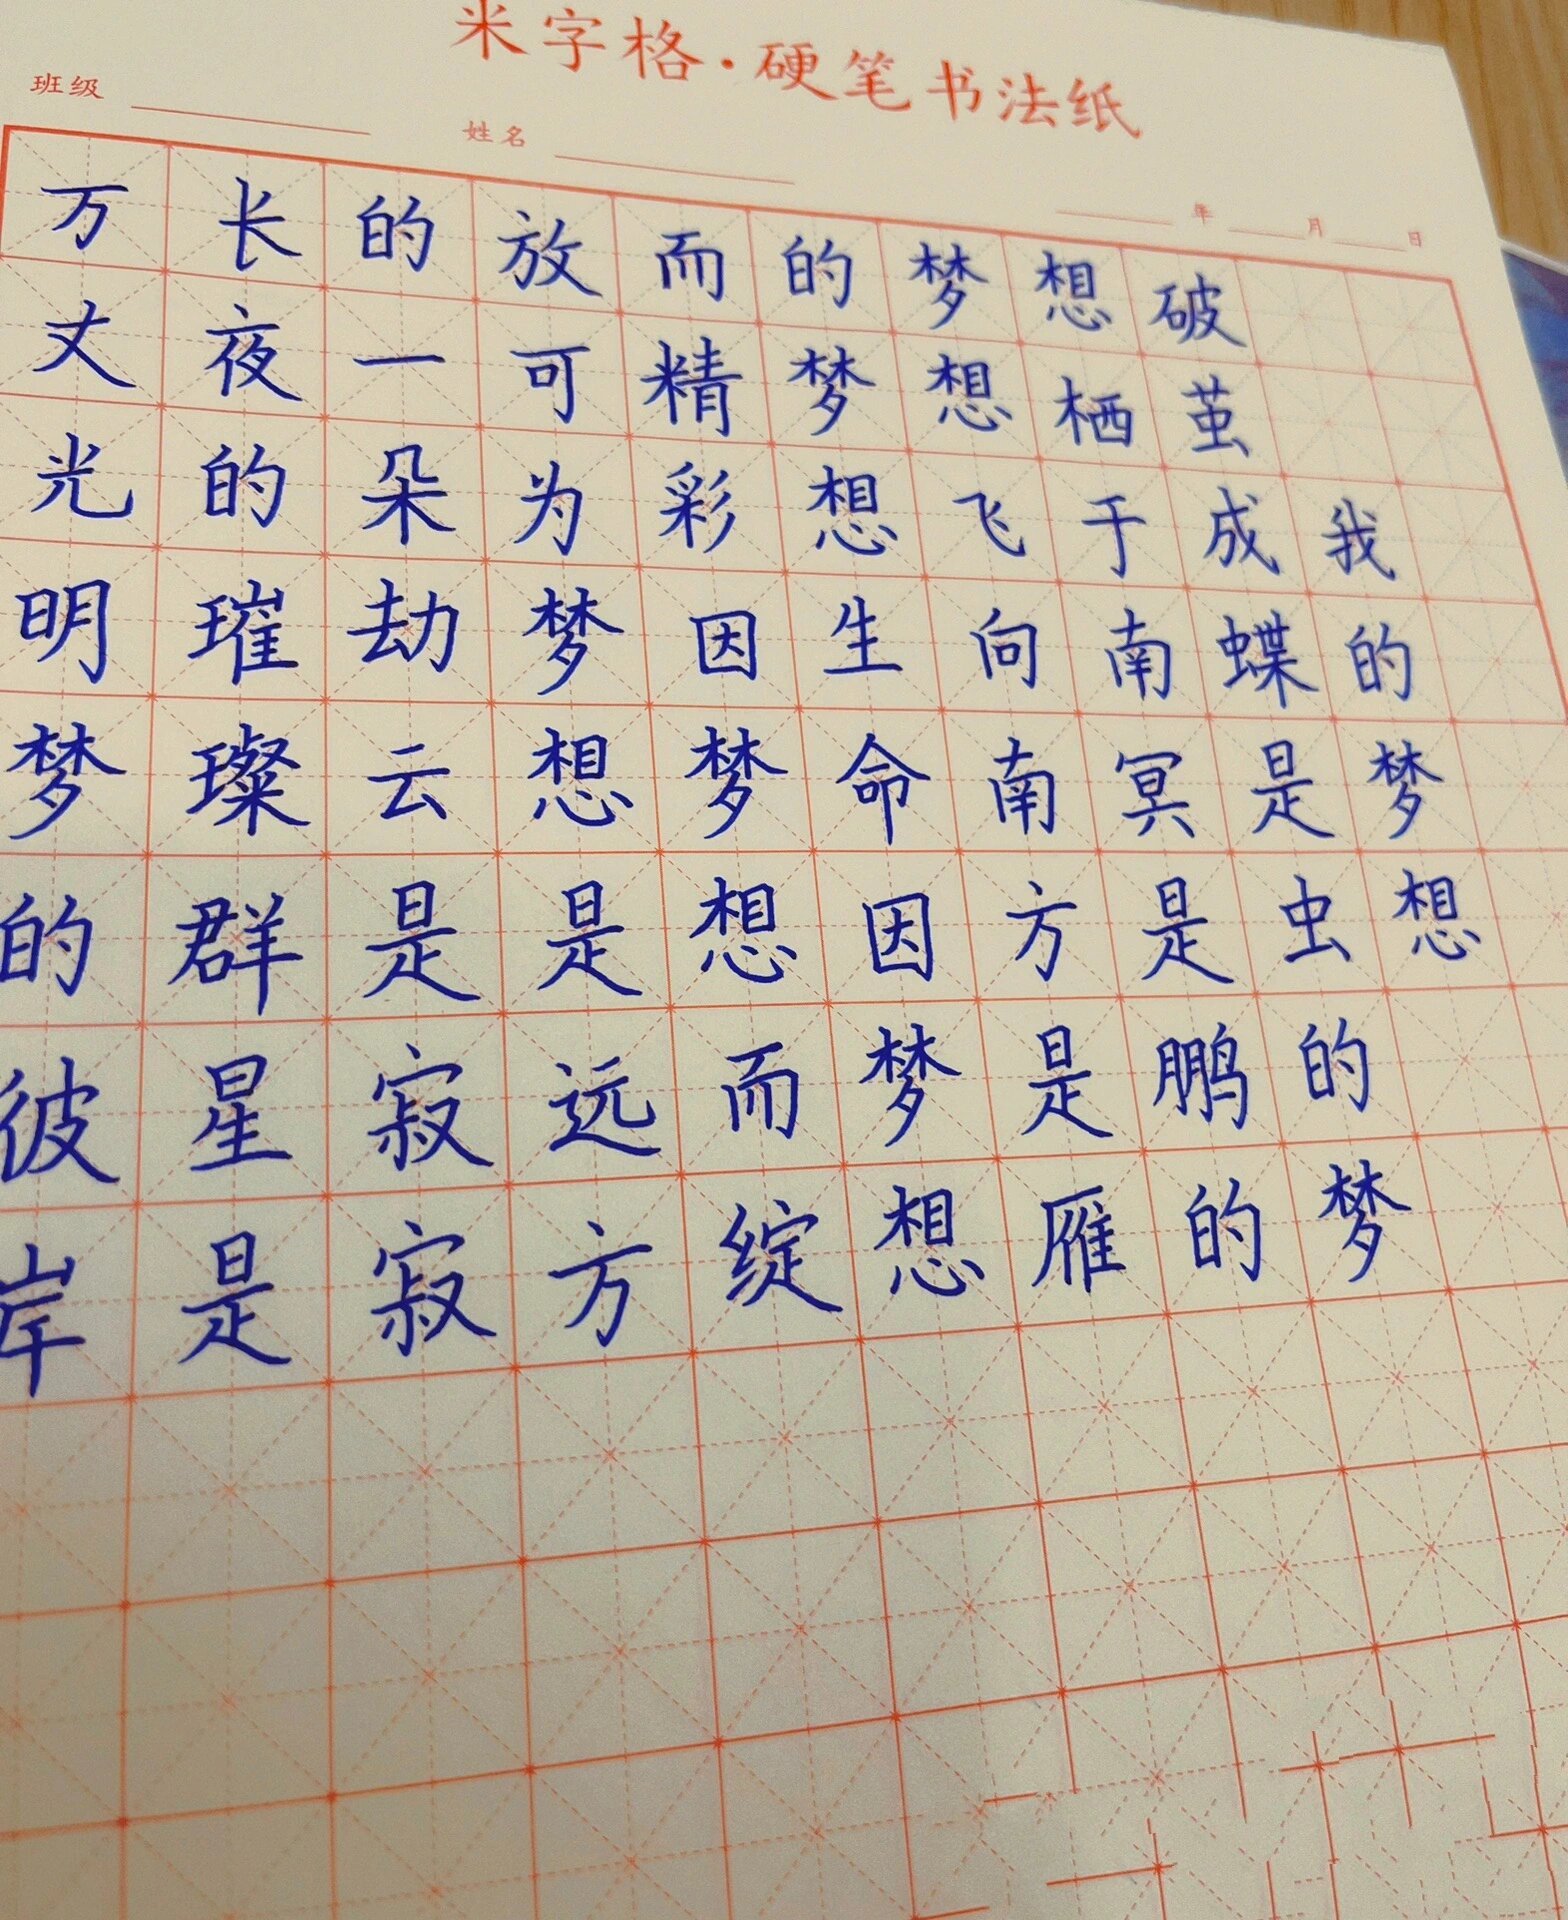 米字格·硬笔书法纸
班级
姓名
年 月 日
我的梦想
破茧成蝶是虫的梦
想栖于南冥是鹏的
梦想飞向南方是雁
的梦想生命因梦想
而精彩因梦想而绽
放可为梦想是远方
的一朵劫云是寂寂
长夜的璀璨群星是
万丈光明梦的彼岸